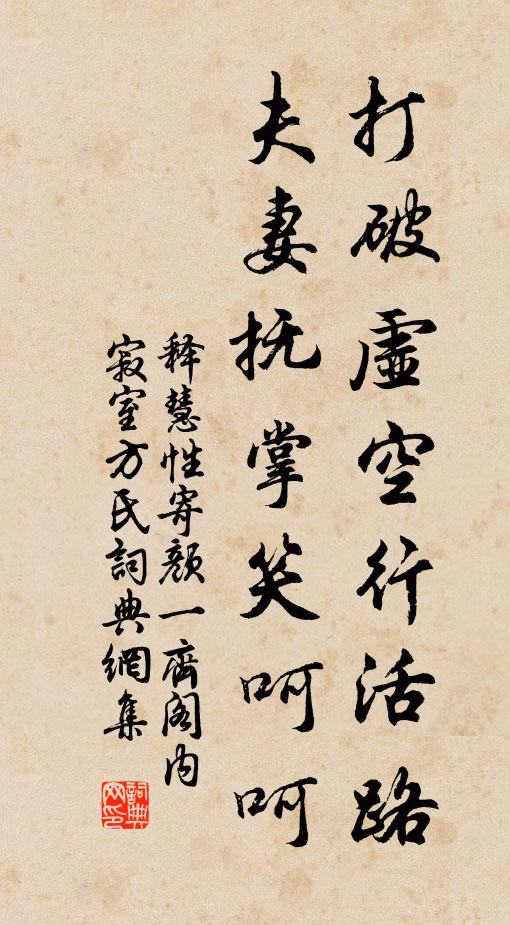 打破虛空行活路
夫妻抚掌笑呵呵
释慧性寄颜一齋阁内
寂室方氏詞典網集
詞典网印